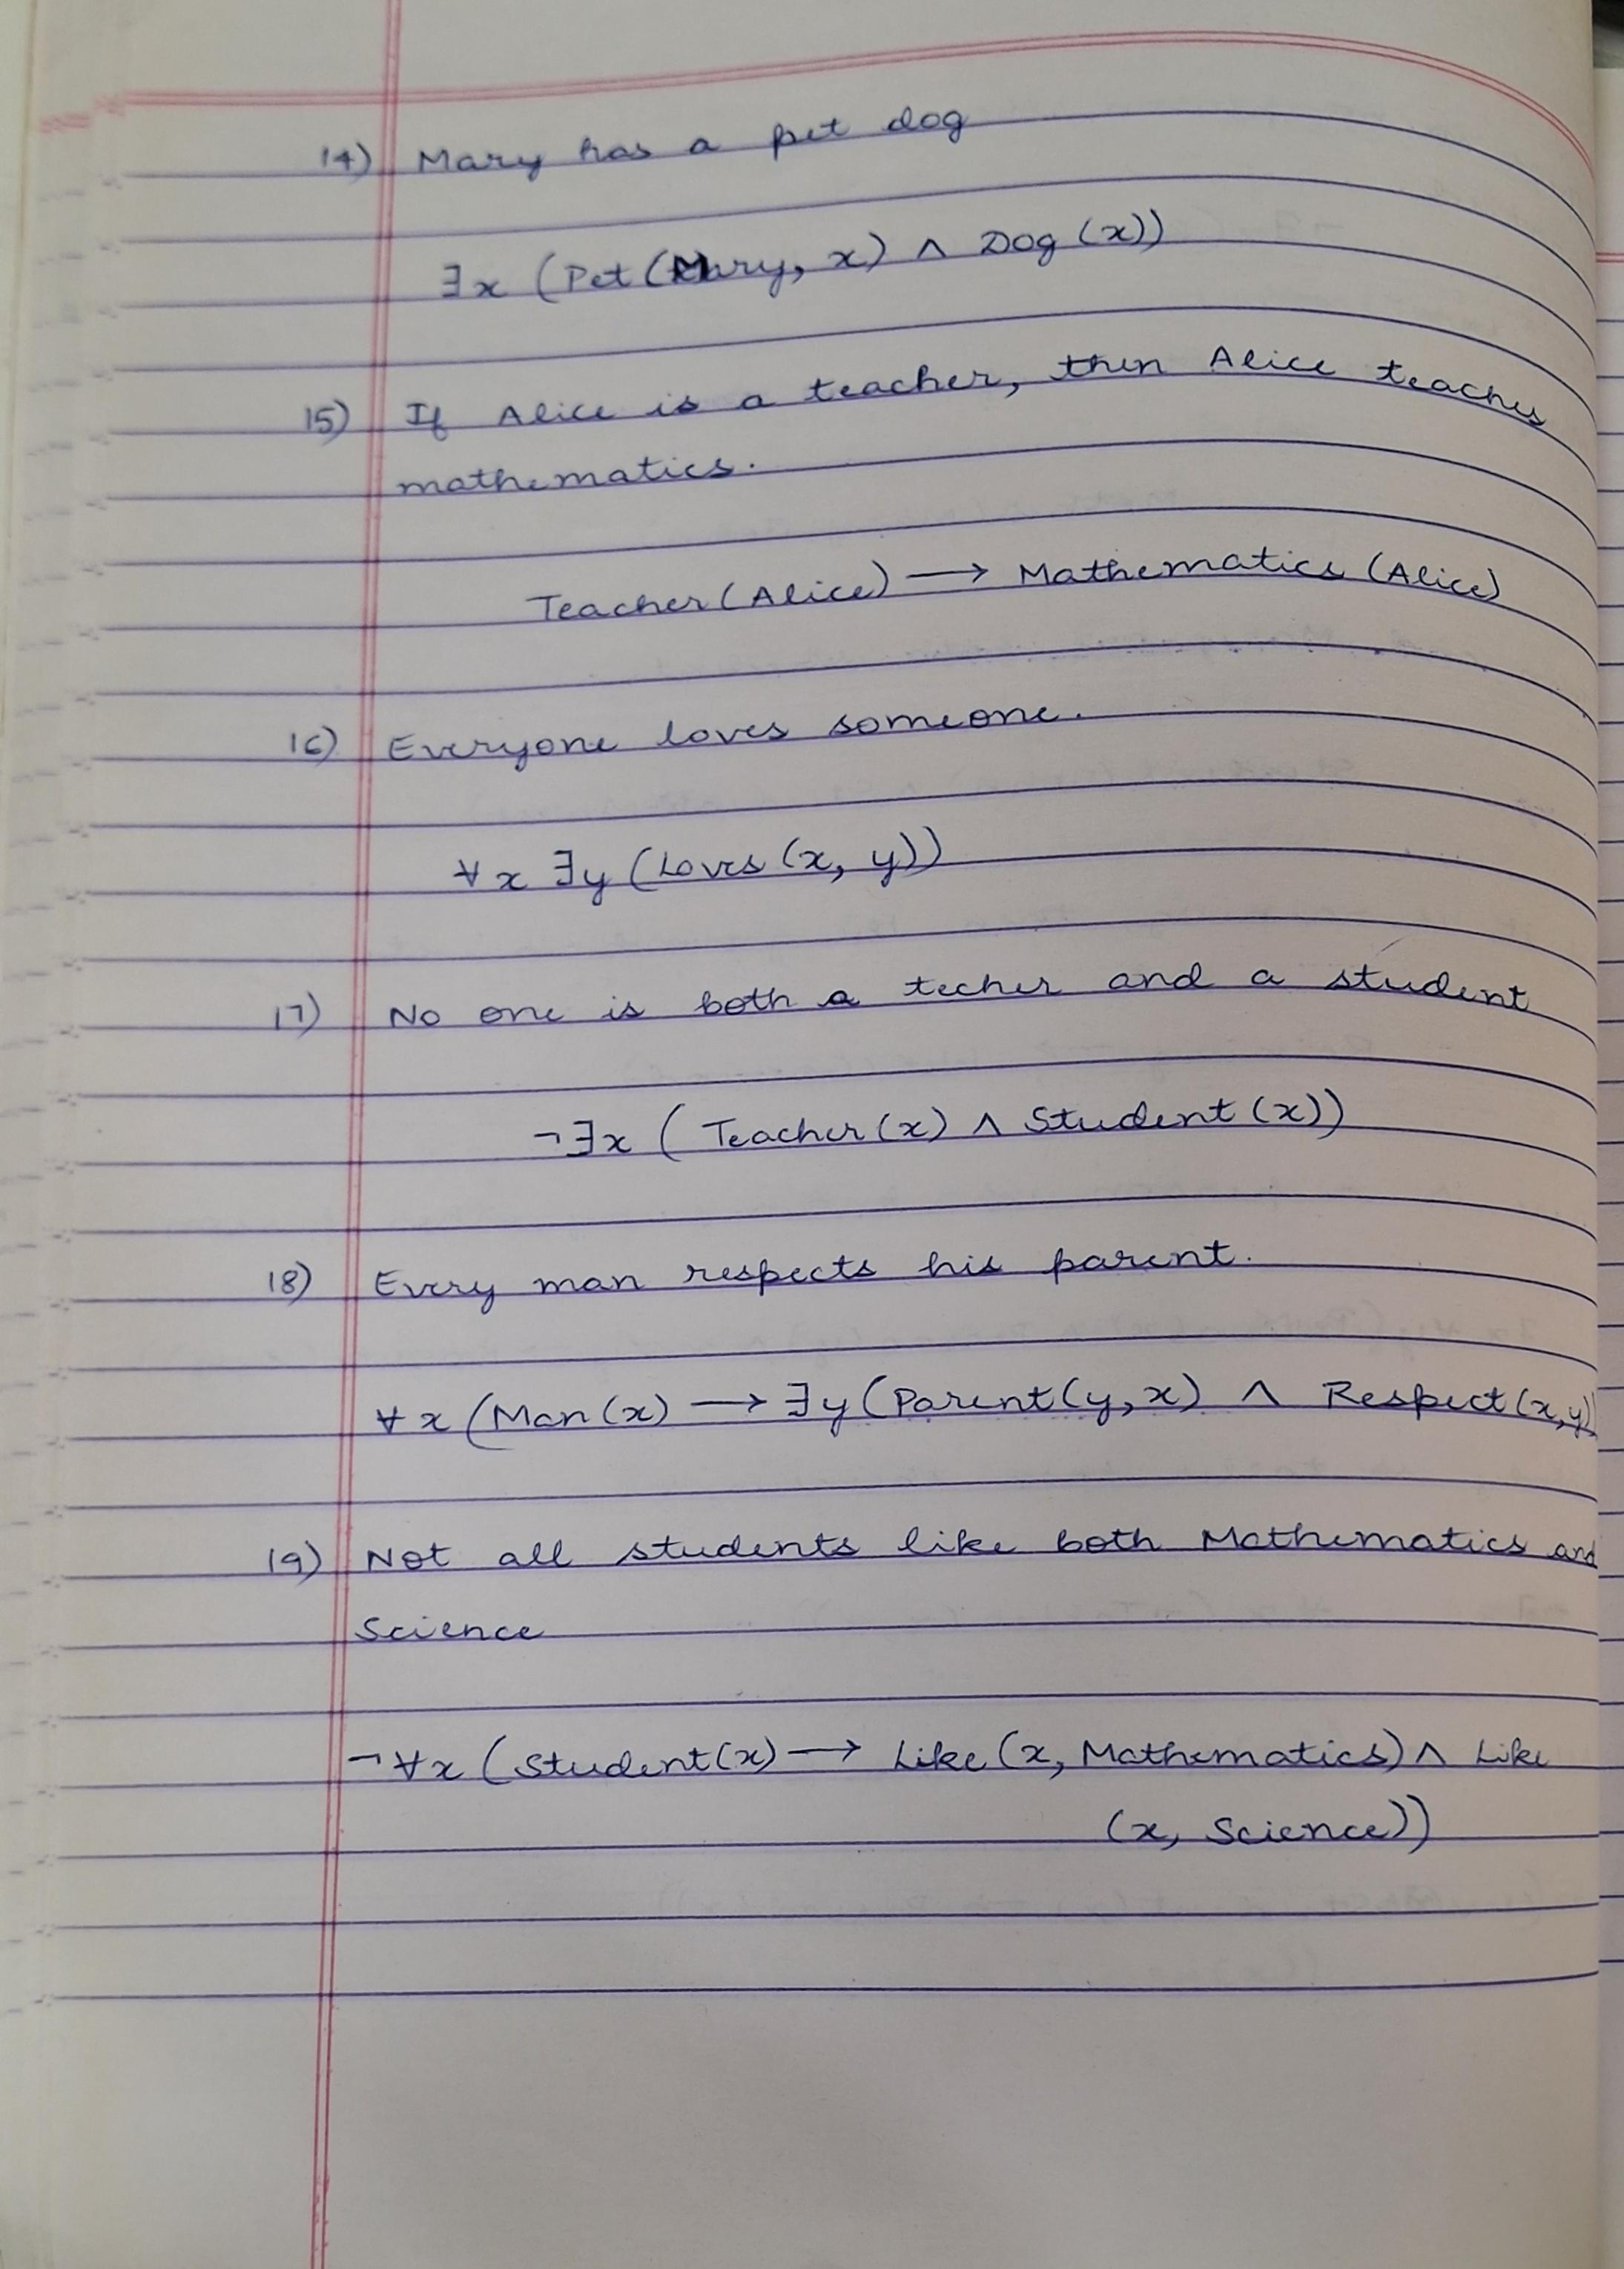 14) Mary has a pet dog
∃x (Pet(Mary, x) ∧ Dog (x))
15) If Alice is a teacher, then Alice teaches
mathematics.
Teacher(Alice) ⟶ Mathematics (Alice)
16) Everyone loves someone.
∀x ∃y (Loves (x, y))
17) No one is both a techer and a student
¬∃x ( Teacher(x) ∧ Student (x))
18) Every man respects his parent.
∀x (Man(x) ⟶ ∃y (Parent(y,x) ∧ Respect(x,y)
19) Not all students like both Mathematics and
Science
¬∀x (Student(x) ⟶ Like (x, Mathematics) ∧ Like
(x, Science))